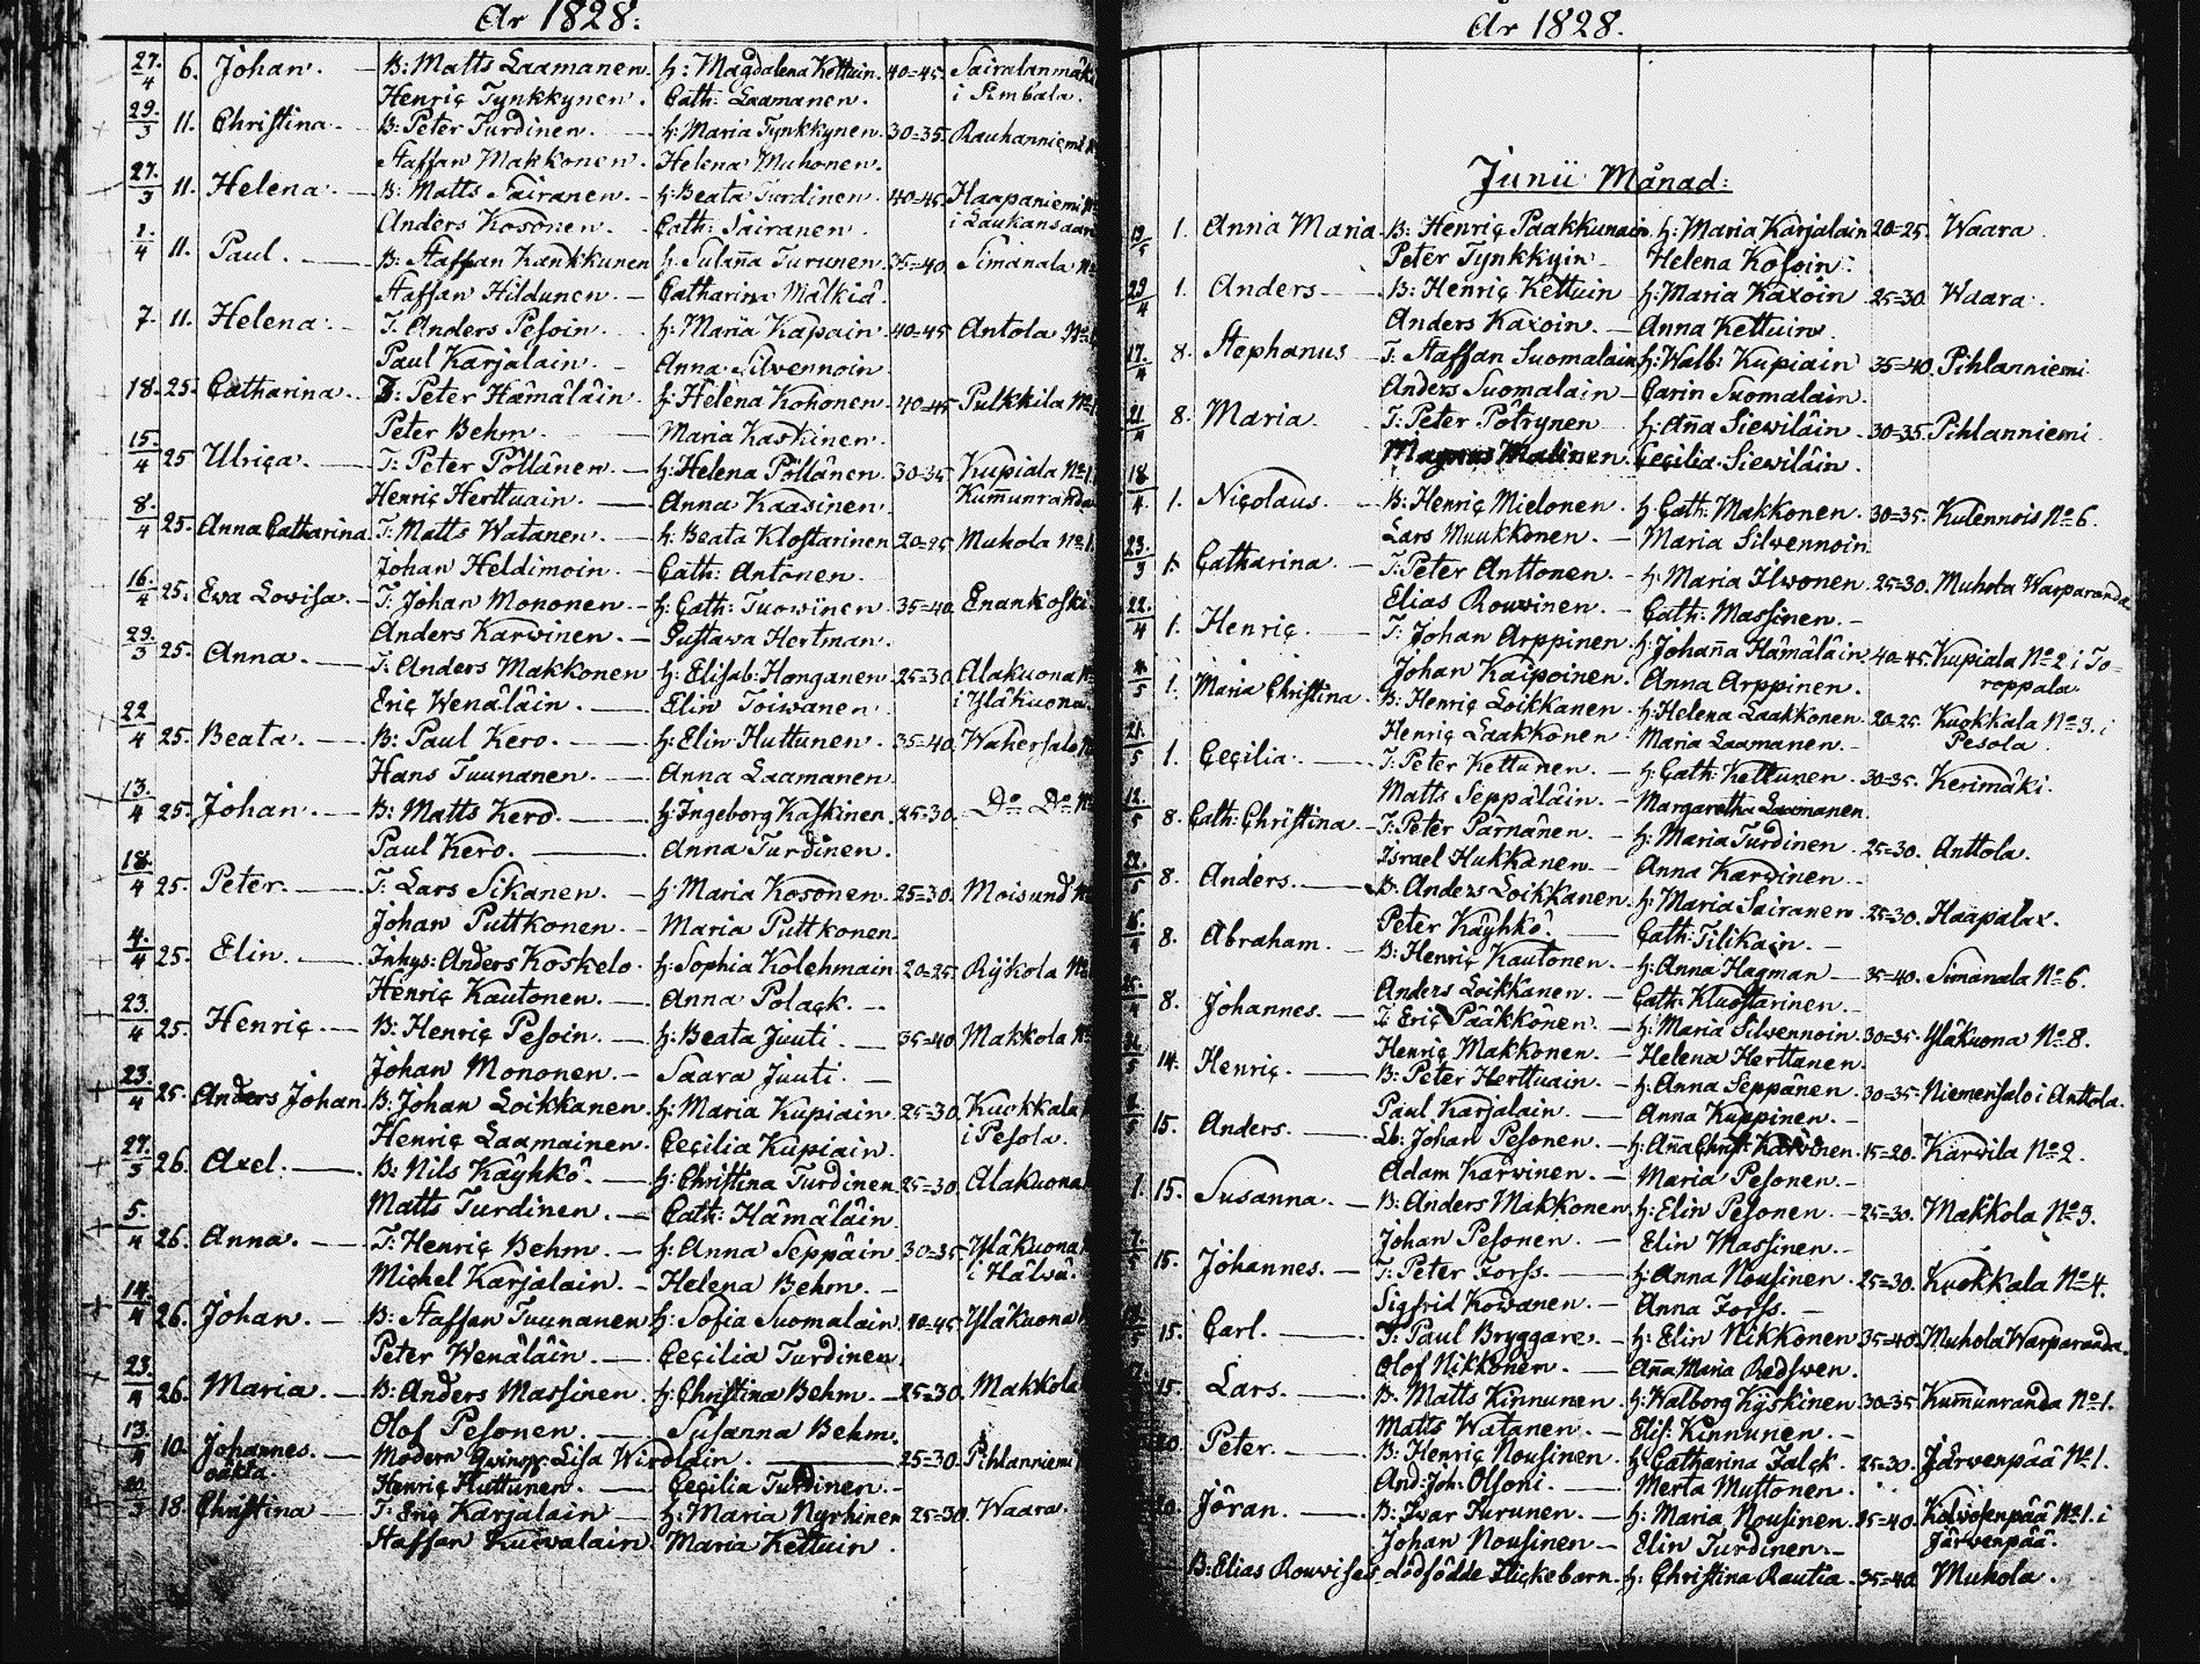 År 1828:
27/4 6. Johan. B: Matts Laamanen. h: Magdalena Kettuin. 40=45. Sairalanmäki
Henriç Tynkkynen. Cath: Laamanen. i Simbala.
29/3 11. Christina. B: Peter Turdinen. h: Maria Tynkkynen. 30=35. Rauhanniemi
Staffan Makkonen. Helena Muhonen.
27/3 11. Helena. B: Matts Sairanen. h: Beata Turdinen. 40=45. Haapaniemi
Anders Kosonen. Cath: Sairanen. i Laukansaari
1/4 11. Paul. B: Staffan Kankkunen h: Susanna Turunen. 35=40. Simanala
Staffan Hildunen. Catharina Mälkiä.
7. 11. Helena. T: Anders Pesoin. h: Maria Kapain. 40=45 Antola
Paul Karjalain. Anna Silvennoin
18. 25. Catharina. Peter Hämäläin. h: Helena Kohonen. 40=45 Pulkkila
Peter Behm. Maria Kaskinen.
15/4 25 Ulriça. T: Peter Pöllänen. h: Helena Pöllänen. 30=35 Kupiala No 1.
Henriç Herttuain. Anna Kaasinen. Kum̃unranda
8/4 25. Anna Catharina. T: Matts Watanen. h: Beata Klostarinen 20=25 Muhola No 1.
Johan Heldimoin. Cath: Antonen.
16/4 25. Ewa Lovisa. T: Johan Mononen. h: Cath: Tuowinen. 35=40. Enankoski
Anders Karwinen. Gustava Hertman.
29/3 25. Anna. T: Anders Makkonen h: Elisab: Honganen. 25=30. Alakuona
Eriç Wenäläin. Elin Toiwanen. i Yläkuona.
22/4 25. Beata. B: Paul Kero. h: Elin Huttunen. 35=40. Wahersalo
Hans Tuunanen. Anna Laamanen
13./4 25. Johan. B: Matts Kero. h: Ingeborg Kaskinen. 25=30. Do Do
Paul Kero. Anna Turdinen.
18./4 25. Peter. T: Lars Sikanen. h: Maria Kosonen. 25=30. Moisund
Johan Puttkonen. Maria Puttkonen.
4./4 25. Elin. Inhys: Anders Koskelo. h: Sophia Kolehmain 20=25. Ryskola
Henriç Kautonen. Anna Polaçk.
23./4 25. Henriç. B: Henriç Pesoin. h: Beata Juuti. 35=40. Makkola
Johan Mononen. Saara Juuti.
23./4 25. Anders Johan. B: Johan Loikkanen. h: Maria Kupiain. 25=30. Kuokkala
Henriç Laamainen. Ceçilia Kupiain. i Pesola.
27./3 26. Axel. B: Nils Käyhkö. h: Christina Turdinen. 25=30. Alakuona
Matts Turdinen. Cath: Hämäläin.
5./4 26. Anna. T: Henriç Behm. h: Anna Seppäin. 30=35. Yläkuona
Michel Karjalain. Helena Behm. i Hälvä.
14./4 26. Johan. B: Staffan Tuunanen h: Sofia Suomalain. 40=45. Yläkuona
Peter Wenäläin. Ceçilia Turdinen.
23./4 26. Maria. B: Anders Massinen. h: Christina Behm. 25=30. Makkola
Olof Pesonen. Susanna Behm.
13./4 10. Johannes. Modern Lisa 25=30. Pihlanniemi
oäkta. Henriç Huttunen. Ceçilia Turdinen.
20/3 18. Christina T: Eriç Karjalain h: Maria Nyrhinen 25=30. Waara.
Staffan Kuivalain. Maria Kettuin.
År 1828.
Junii Månad:
19/5 1. Anna Maria. B: Henriç Paakkunain. h: Maria Karjalain 20=25. Waara.
Peter Tynkkyin Helena Kosoin.
29/4 1. Anders B: Henriç Kettuin h: Maria Kaxoin 25=30. Waara.
Anders Kaxoin. Anna Kettuin.
17/4 8. Stephanus T: Staffan Suomalain h: Walb: Kupiain 35=40. Pihlanniemi
Anders Suomalain Carin Suomalain.
21/4 8. Maria. T: Peter Pötrynen h: Anna Siewiläin. 30=35. Pihlanniemi.
Magnus Malinen. Ceçilia Siewiläin.
18/4. 1. Niçolaus. B: Henriç Mielonen. h: Cath: Makkonen. 30=35. Kulennois No 6.
Lars Muukkonen. Maria Silvennoin
23./3 1. Catharina. T: Peter Anttonen. h: Maria Ilwonen. 25=30. Muhola Warparanda.
Elias Rouvinen. Cath: Massinen.
22./4 1. Henriç. T: Johan Arppinen. h: Johanna Hämäläin 40=45. Kupiala No 2 i To-
Johan Kaipoinen. Anna Arppinen. roppala.
4./5 1. Maria Christina. B: Henriç Loikkanen. h: Helena Laakkonen. 20=25. Kuokkala No 3. i
Henriç Laakkonen. Maria Laamanen. Pesola.
21./5 1. Ceçilia. T: Peter Kettunen. h: Cath: Kettunen. 30=35. Kerimäki.
Matts Seppäläin. Margaretha Laamanen.
12./5 8. Cath: Christina. T: Peter Pärnänen. h: Maria Turdinen. 25=30. Anttola.
Israel Hukkanen. Anna Karvinen.
22./5 8. Anders. B: Anders Loikkanen. h: Maria Sairanen. 25=30. Haapalax.
Peter Käyhkö. Cath: Tilikain.
16./4 8. Abraham. B: Henriç Kautonen. h: Anna Hagman 35=40. Simanala No 6.
Anders Loikkanen. Cath: Kluostarinen.
8. Johannes. T: Eriç Pääkkönen. h: Maria Silvennoin. 30=35. Yläkuona No 8.
Henriç Makkonen. Helena Herttanen.
14. Henriç. B: Peter Herttuain. h: Anna Seppänen. 30=35. Niemensalo i Anttola.
Paul Karjalain. Anna Kuppinen.
15. Anders. Lb: Johan Pesonen. h: Anna Christ: Karvinen. 15=20. Karvila No 2.
Adam Karwinen. Maria Pesonen.
1. 15. Susanna. B: Anders Makkonen. h: Elin Pesonen. 25=30. Makkola No 3.
Johan Pesonen. Elin Massinen.
7./5 15. Johannes. T: Peter Forss. h: Anna Nousinen. 25=30. Kuokkala No 4.
Sigfrid Kowanen. Anna Forss.
15. Carl. T: Paul Bryggare. h: Elin Nikkonen 35=40. Muhola Warparanda.
Olof Nikkonen. Anna Maria Redswen.
15. Lars. B: Matts Kinnunen. h: Walborg Kyskinen. 30=35 Kum̃unranda No 1.
Matts Watanen. Elis: Kinnunen.
20. Peter. B: Henriç Nousinen. h: Catharina Falçk. 25=30. Järvenpää No 1.
And: Joh: Olsoni. Merta Muttonen.
20. Jöran. B: Iwar Turunen. h: Maria Nousinen. 35=40. No 1. i
Johan Nousinen Elin Turdinen. Järwenpää.
B: Elias dödfödde Flickebarn. h: Christina Rautia. 35=40. Muhola.